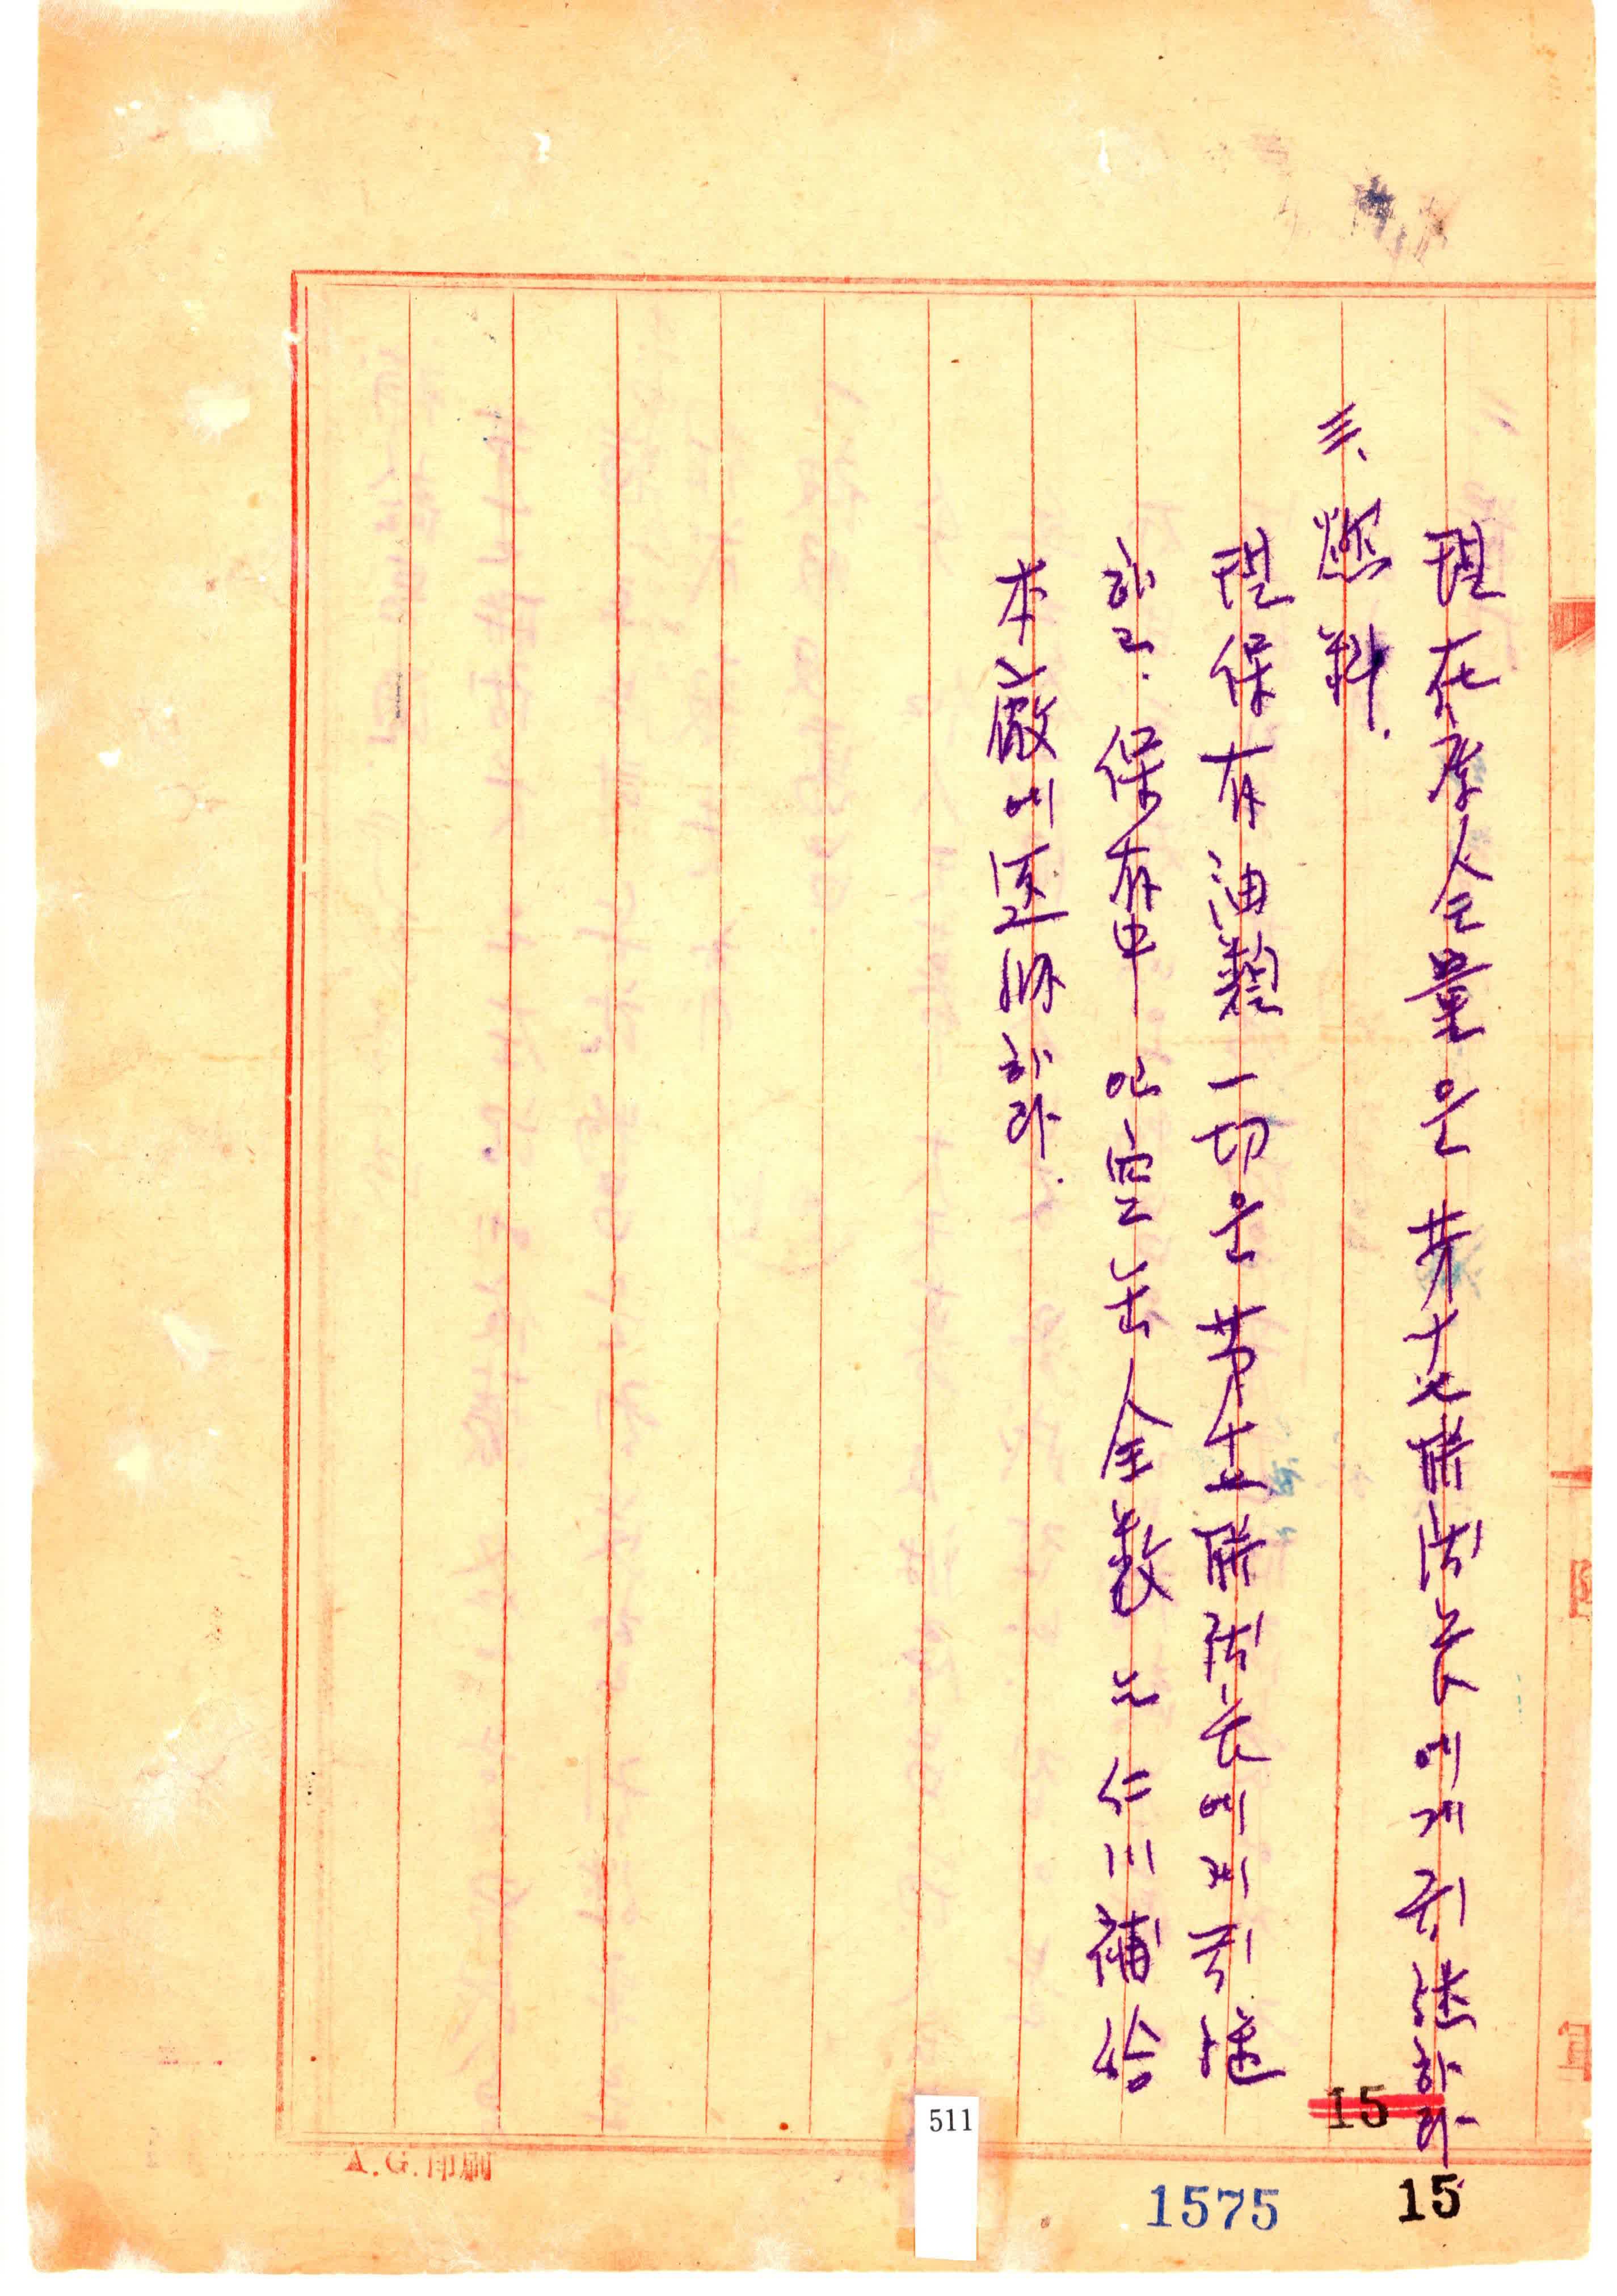 現在庫全量은 第十七聯隊長에게 引継하라
三、燃料.
現保有油類 一切은 第十七聯隊長에게 引継
하고. 保有中 인 空缶 全数 는 仁川 補給
本廠에 返納하라.
511
15
1575
15
A.G.印刷